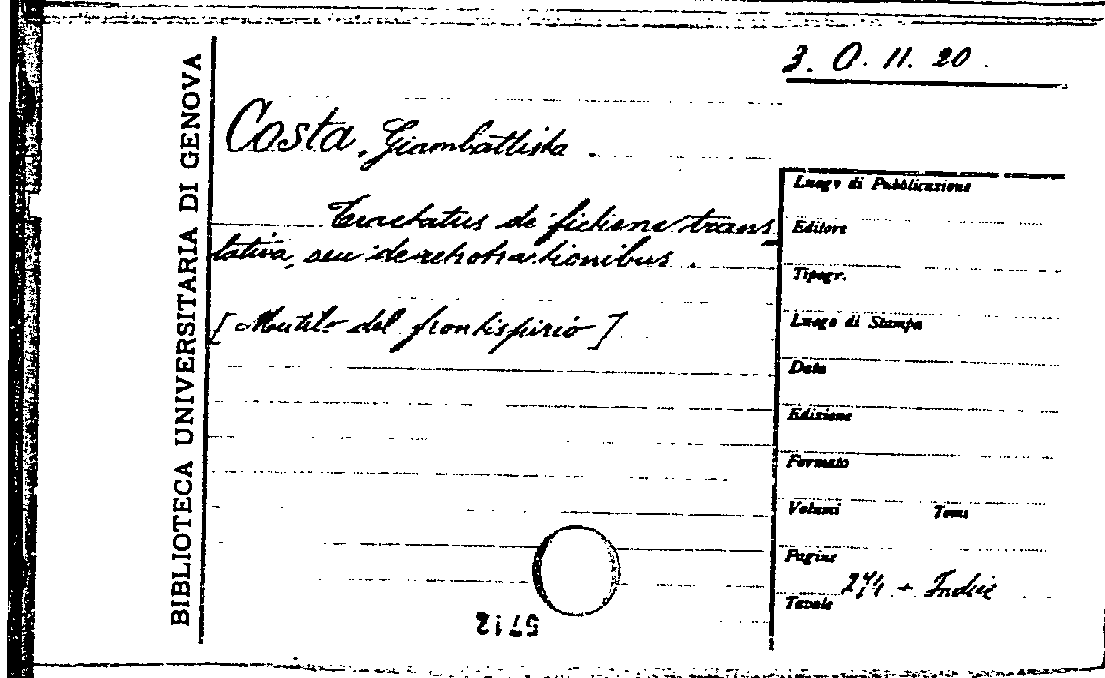 3. O. 11. 20.
BIBLIOTECA UNIVERSITARIA DI GENOVA
Costa, Giambattista.
Tractatus de fictione trans
lativa, seu de retrotractionibus.
[Mutilo del frontispizio]
Luogo di Pubblicazione
Editore
Tipogr.
Luogo di Stampa
Data
Edizione
Formato
Volumi Tomi
Pagine
274 + Indici
Tavole
5712